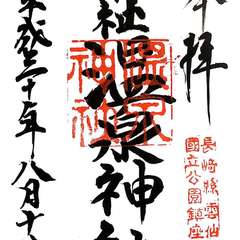 奉拝
長崎縣雲仙
國立公園鎮座
社温泉神社
温泉
神社
平成三十年八月十